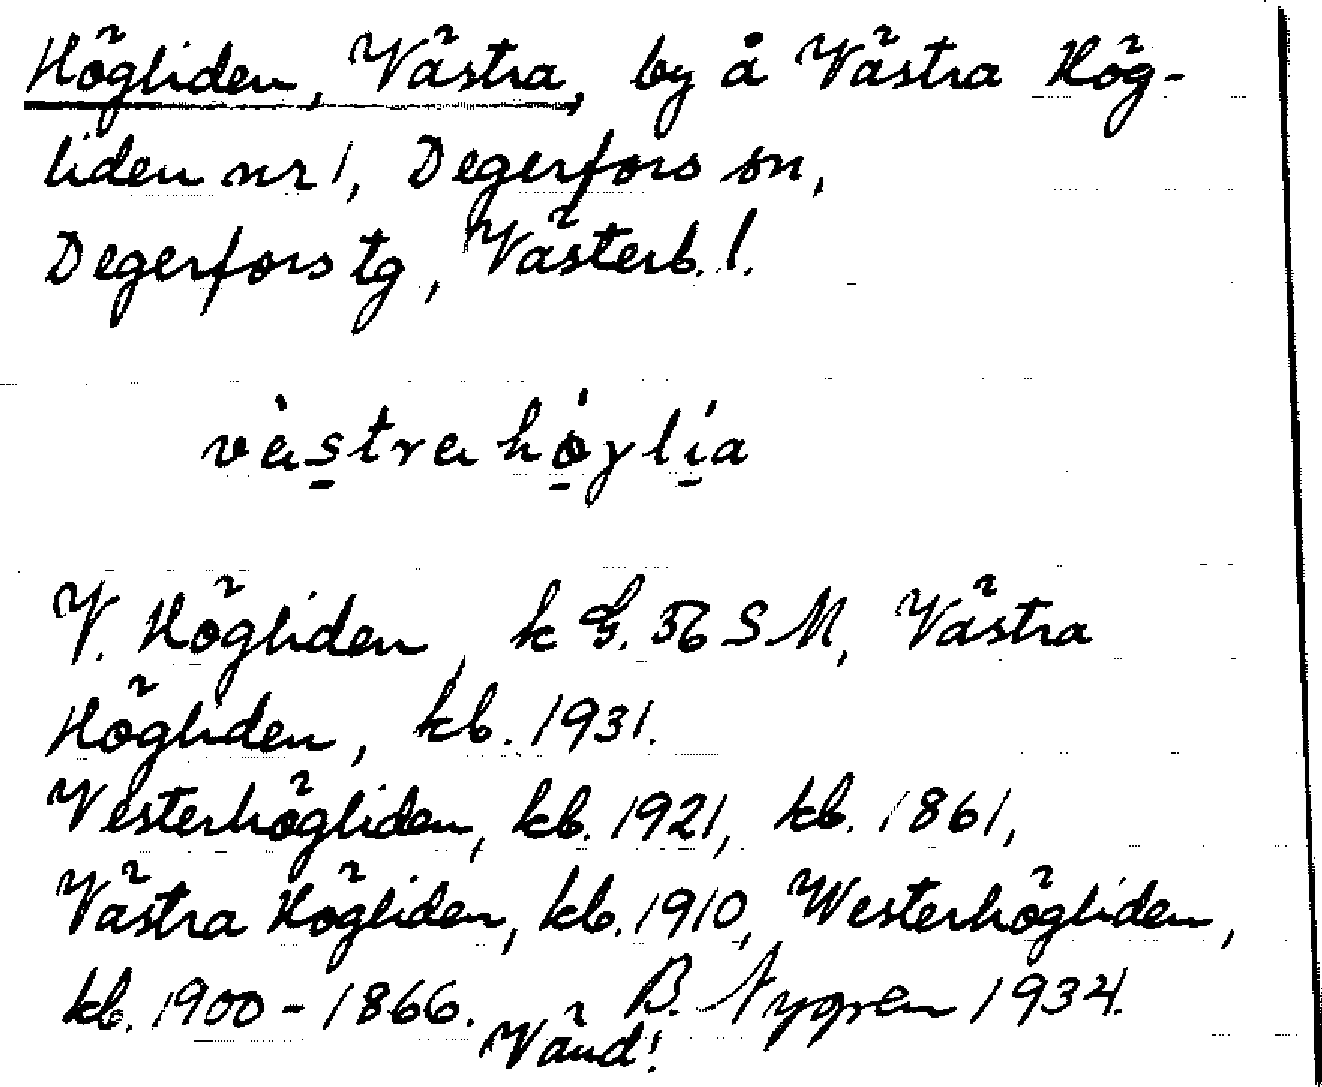 Högliden, Västra, by å Västra Hög-
liden nr 1, Degerfors sn,
Degerfors tg, Västerb. l.
västrahöylia
V. Högliden, k G. 56 SM, Västra
Högliden, kb. 1931.
Vesterhögliden, kb. 1921, kb. 1861,
Västra Högliden, kb. 1910, Westerhögliden,
kb. 1900-1866. B. Nygren 1934.
Vänd!